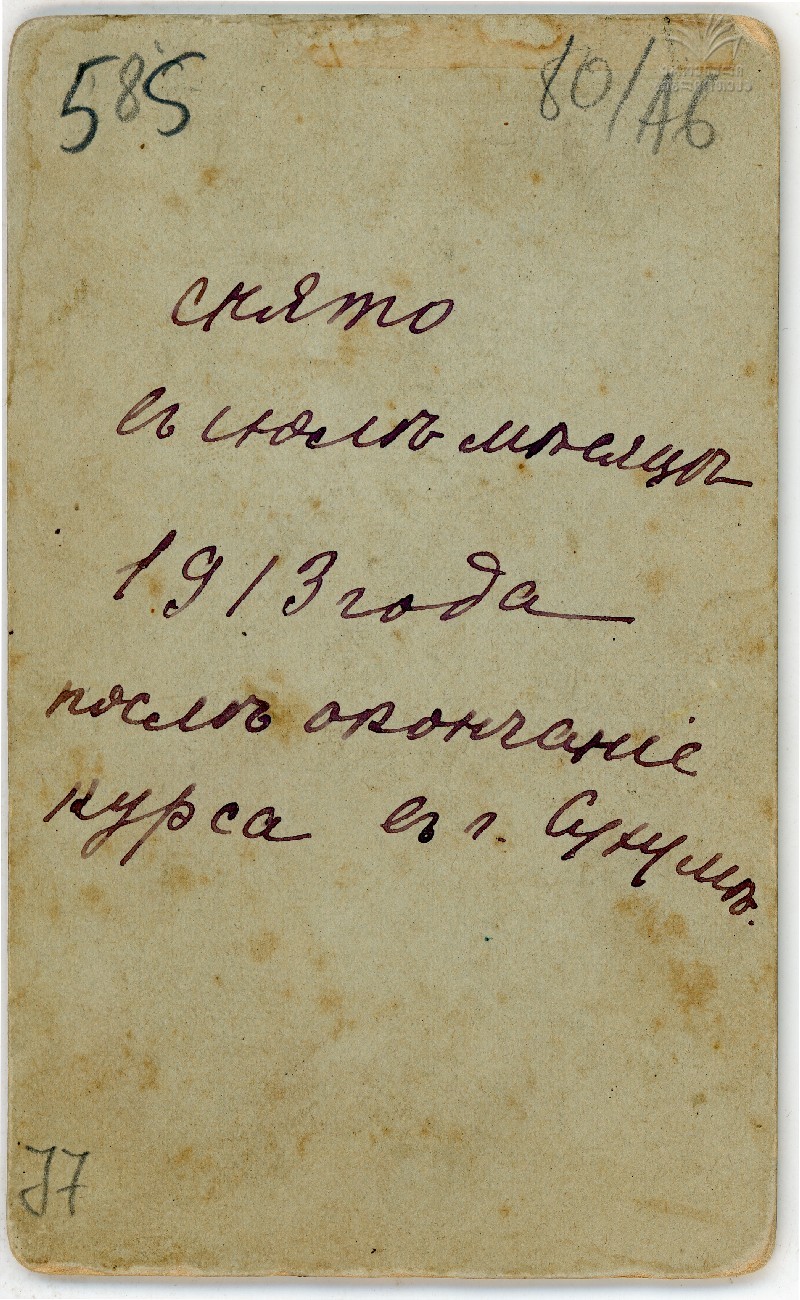 585 80/А6
снято
въ июлѣ мѣсяцѣ
1913 года
послѣ окончаніе
курса въ г. Сухумѣ.
J7